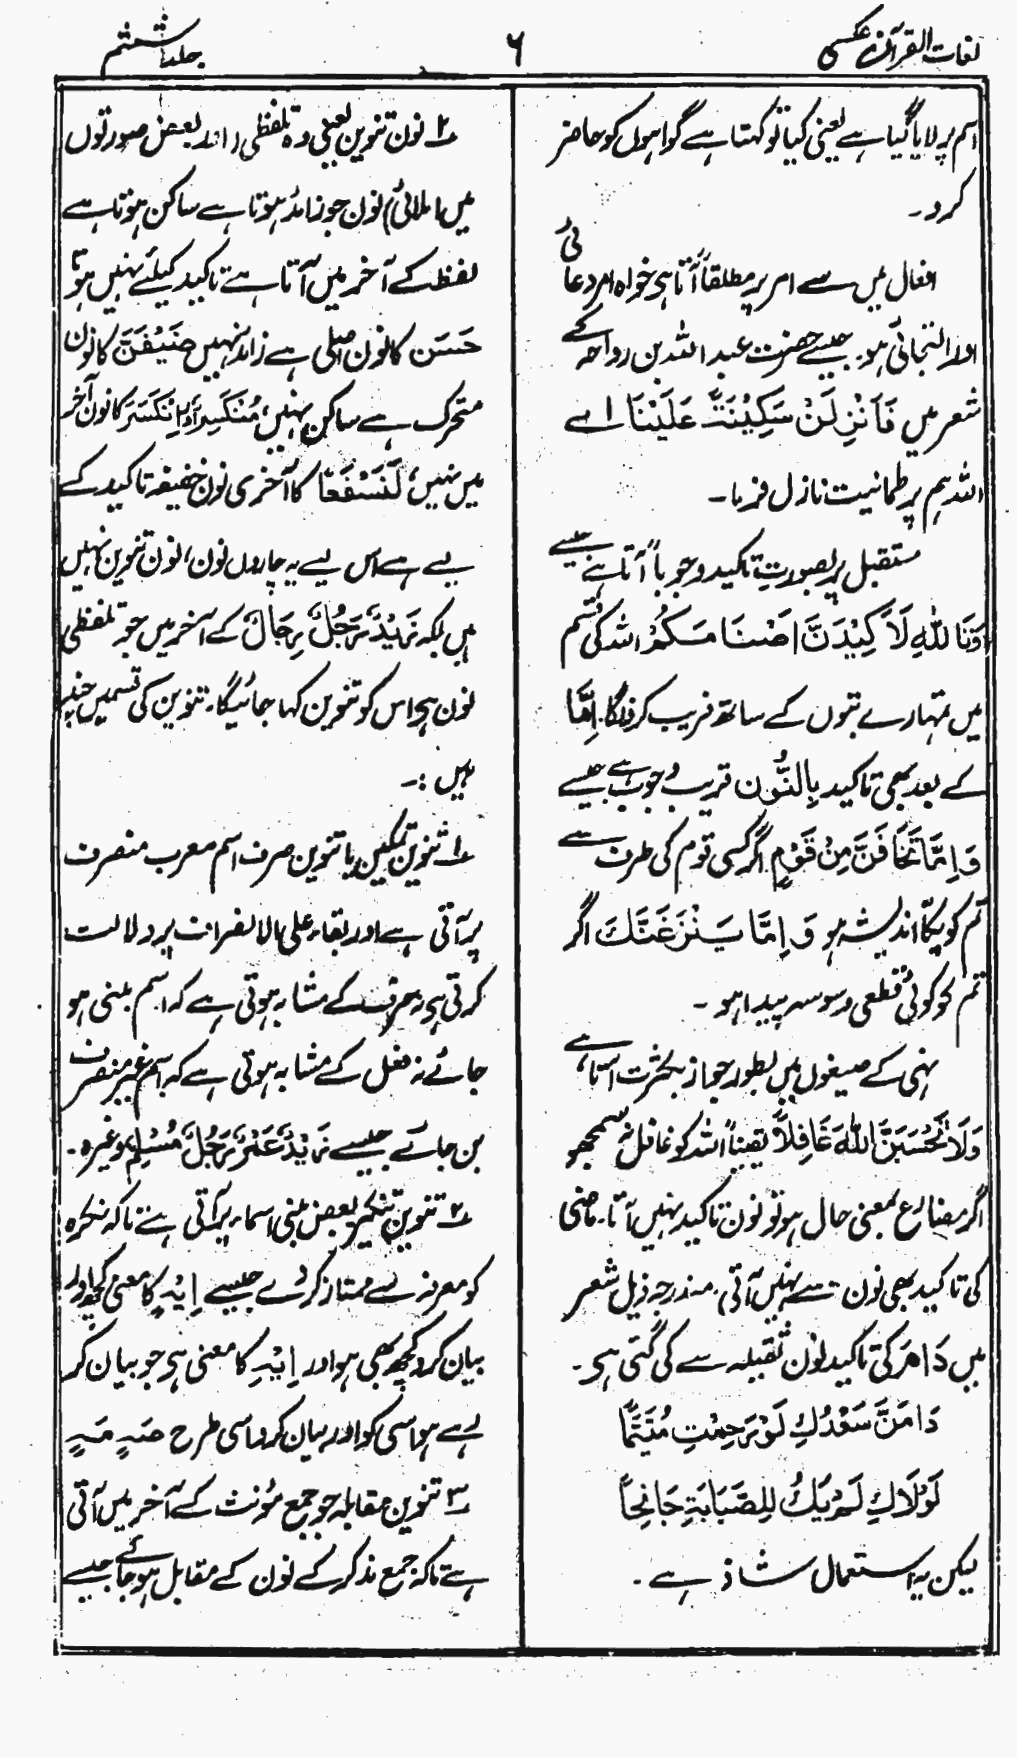 لغات القرآن عکسی
۶
جلد ششم
اسم پر لایا گیا ہے یعنی کیا تو کہتا ہے گواہوں کو حاضر
کرد۔
افعال میں سے امر پر مطلقاً آتا ہی خواہ امر دعائی
اور التجائی ہو۔ جیسے حضرت عبد اللہ بن رواحہ کے
شعر میں فَاَنْزِلَنْ سَكِيْنَةً عَلَيْنَا اے
اللہ ہم پر طمانیت نازل فرما۔
مستقبل پر بصورتِ تاکید وجوباً آتا ہے جیسے
وَتَا للّٰهِ لَاَكِيْدَنَّ اَصْنَامَكُمْ اللہ کی قسم
میں تمہارے بتوں کے ساتھ فریب کرونگا۔ اِمَّا
کے بعد بھی تاکید بِالنُّوْن قریب وجوب ہے جیسے
وَ اِمَّا تَخَافَنَّ مِنْ قَوْمٍ اگر کسی قوم کی طرف سے
تم کو پکّا اندیشہ ہو وَ اِمَّا يَنْزَغَنَّكَ اگر
تم کو کوئی قطعی وسوسہ پیدا ہو ۔
نہی کے صیغوں میں بطور جواز بکثرت آتا ہے،
وَلَا تَحْسَبَنَّ اللّٰهَ غَافِلًا یقیناً اللہ کو غافل نہ سمجھو
اگر مضارع بمعنی حال ہو تو نون تاکید نہیں آتا۔ ماضی
کی تاکید بھی نون سے نہیں آتی۔ مندرجہ ذیل شعر
میں دَامَ کی تاکید نون ثقیلہ سے کی گئی ہی۔
دَامَنَّ سَعْدُكِ لَوْ رَحِمْتِ مُتَيَّمًا
لَوْلَاكِ لَمْ يَكُ لِلصَّبَابَةِ جَانِحًا
لیکن یہ استعمال شاذ ہے ۔
۲؎ نون تنوین یعنی وہ تلفظی (اور بعض صورتوں
میں املائی) نون جو زائد ہوتا ہے ساکن ہوتا ہے
لفظ کے آخر میں آتا ہے تاکید کیلئے نہیں ہوتا
حَسَن کا نون اصلی ہے زائد نہیں ضَيْفَنَّ کا نون
متحرک ہے ساکن نہیں، مُنْكَسِر اور اِنْكَسَرَ کا نون آخر
میں نہیں، لَنَسْفَعًا کا آخری نون خفیفہ تاکید کے
لیے ہے اس لیے یہ چاروں نون، نون تنوین نہیں
ہیں بلکہ زَيْدٌ، رَجُلٌ، رِجَالٌ کے آخر میں جو تلفظی
نون ہی اس کو تنوین کہا جائیگا۔ تنوین کی قسمیں چند
ہیں :۔
۱؎ تنوین تمکین، یا تنوین صرف اسم معرب منصرف
پر آتی ہے اور بقاء علی الانصراف پر دلالت
کرتی ہی نہ حرف کے مشابہ ہوتی ہے کہ اسم مبنی ہو
جائے نہ فعل کے مشابہ ہوتی ہے کہ اسم غیر منصرف
بن جائے جیسے زَيْدٌ، عَمْرٌ، رَجُلٌ، مُسْلِمٌ وغیرہ۔
۲؎ تنوین تنکیر بعض مبنی اسماء پر آتی ہے تاکہ نکرہ
کو معرفہ سے ممتاز کر دے جیسے اِيْهٍ کا معنی کچھ اور
بیان کرو کچھ بھی ہو اور اِيْهِ کا معنی ہی جو بیان کر
رہے ہو اسی کو اور بیان کرو اسی طرح صَهٍ مَهٍ
۳؎ تنوین مقابلہ جو جمع مؤنث کے آخر میں آتی
ہے تاکہ جمع مذکر کے نون کے مقابل ہو جائے جیسے